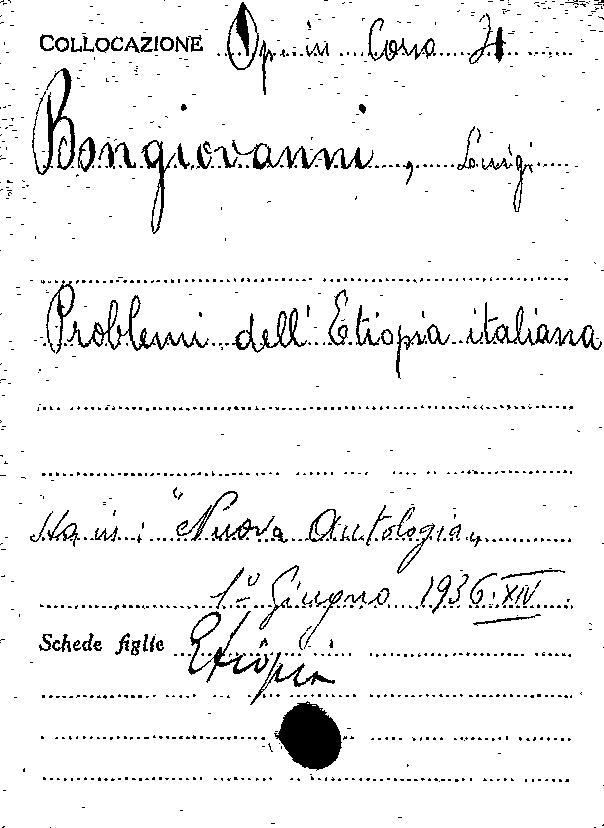 COLLOCAZIONE Op. in Corso
Bongiovanni, Luigi
Problemi dell' Etiopia italiana
Sta in: "Nuova Antologia„
1º Giugno 1936. XIV
Schede figlie Etiopia